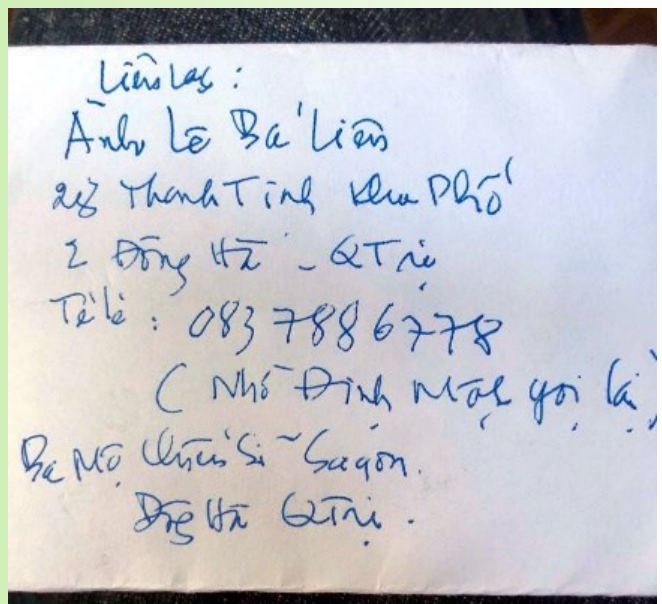 Liên lạc :
Anh Lê Bá Liên
28 Thanh Tịnh Khu Phố
2 Đông Hà - QTrị
Télé : 0837886778
( Nhớ Định Mạch gọi lại )
Ba Mộ Chiến Sĩ Sagon.
Đông Hà QTrị .